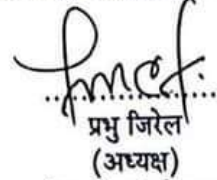 प्रभु जिरेल
(अध्यक्ष)